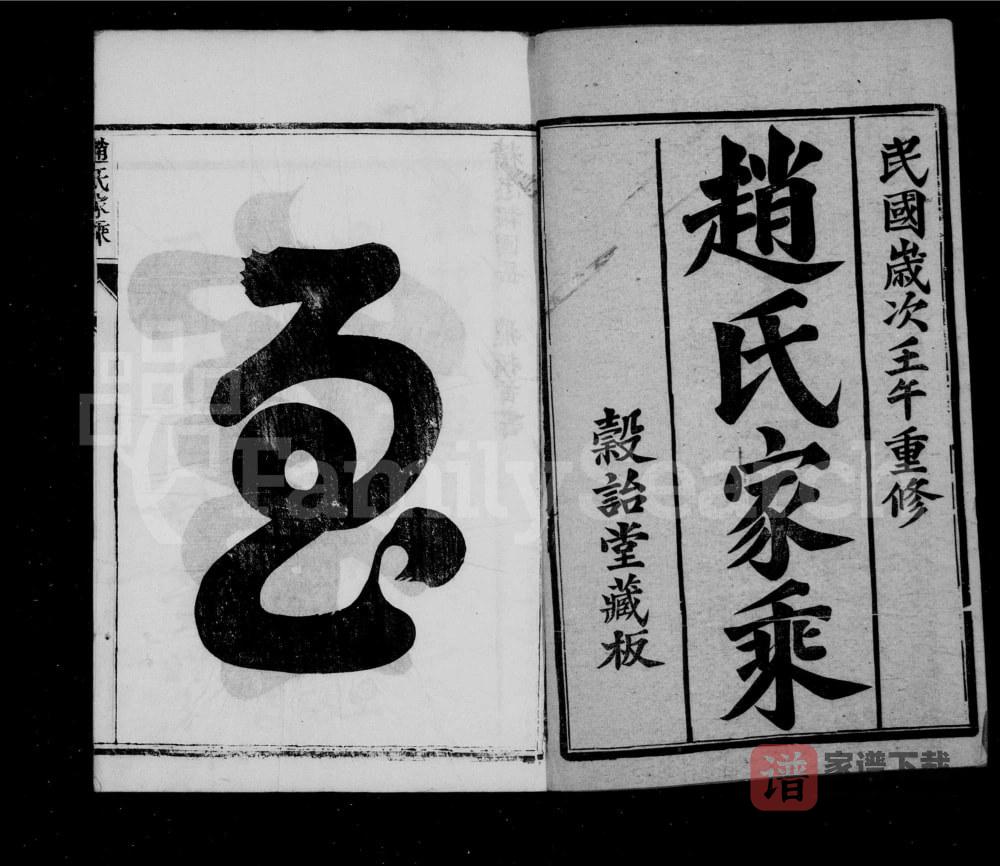 民國歲次壬午重修
趙氏家乘
穀詒堂藏板
趙氏家乘
FamilySearch
谱 家谱下载